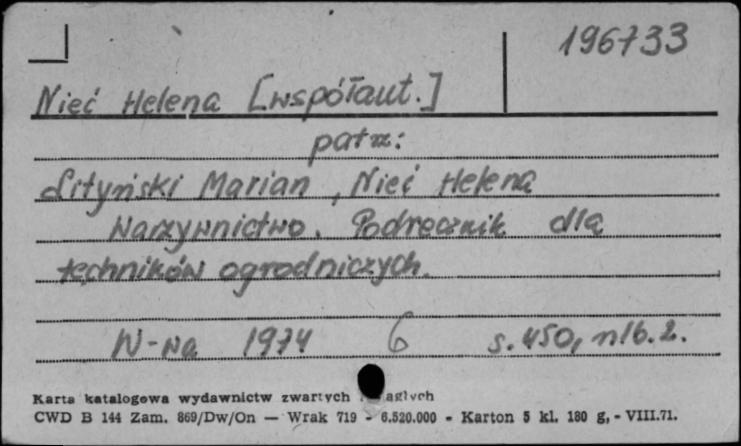 196733
Nieć Helena [współaut.]
patrz:
Lityński Marian, Nieć Helena
Warzywnictwo. Podręcznik dla
techników ogrodniczych.
W-wa 1974 6 s. 450, nlb. 2.
Karta katalogowa wydawnictw zwartych i ciągłych
CWD B 144 Zam. 869/Dw/On — Wrak 719 - 6.520.000 - Karton 5 kl. 180 g, - VIII.71.